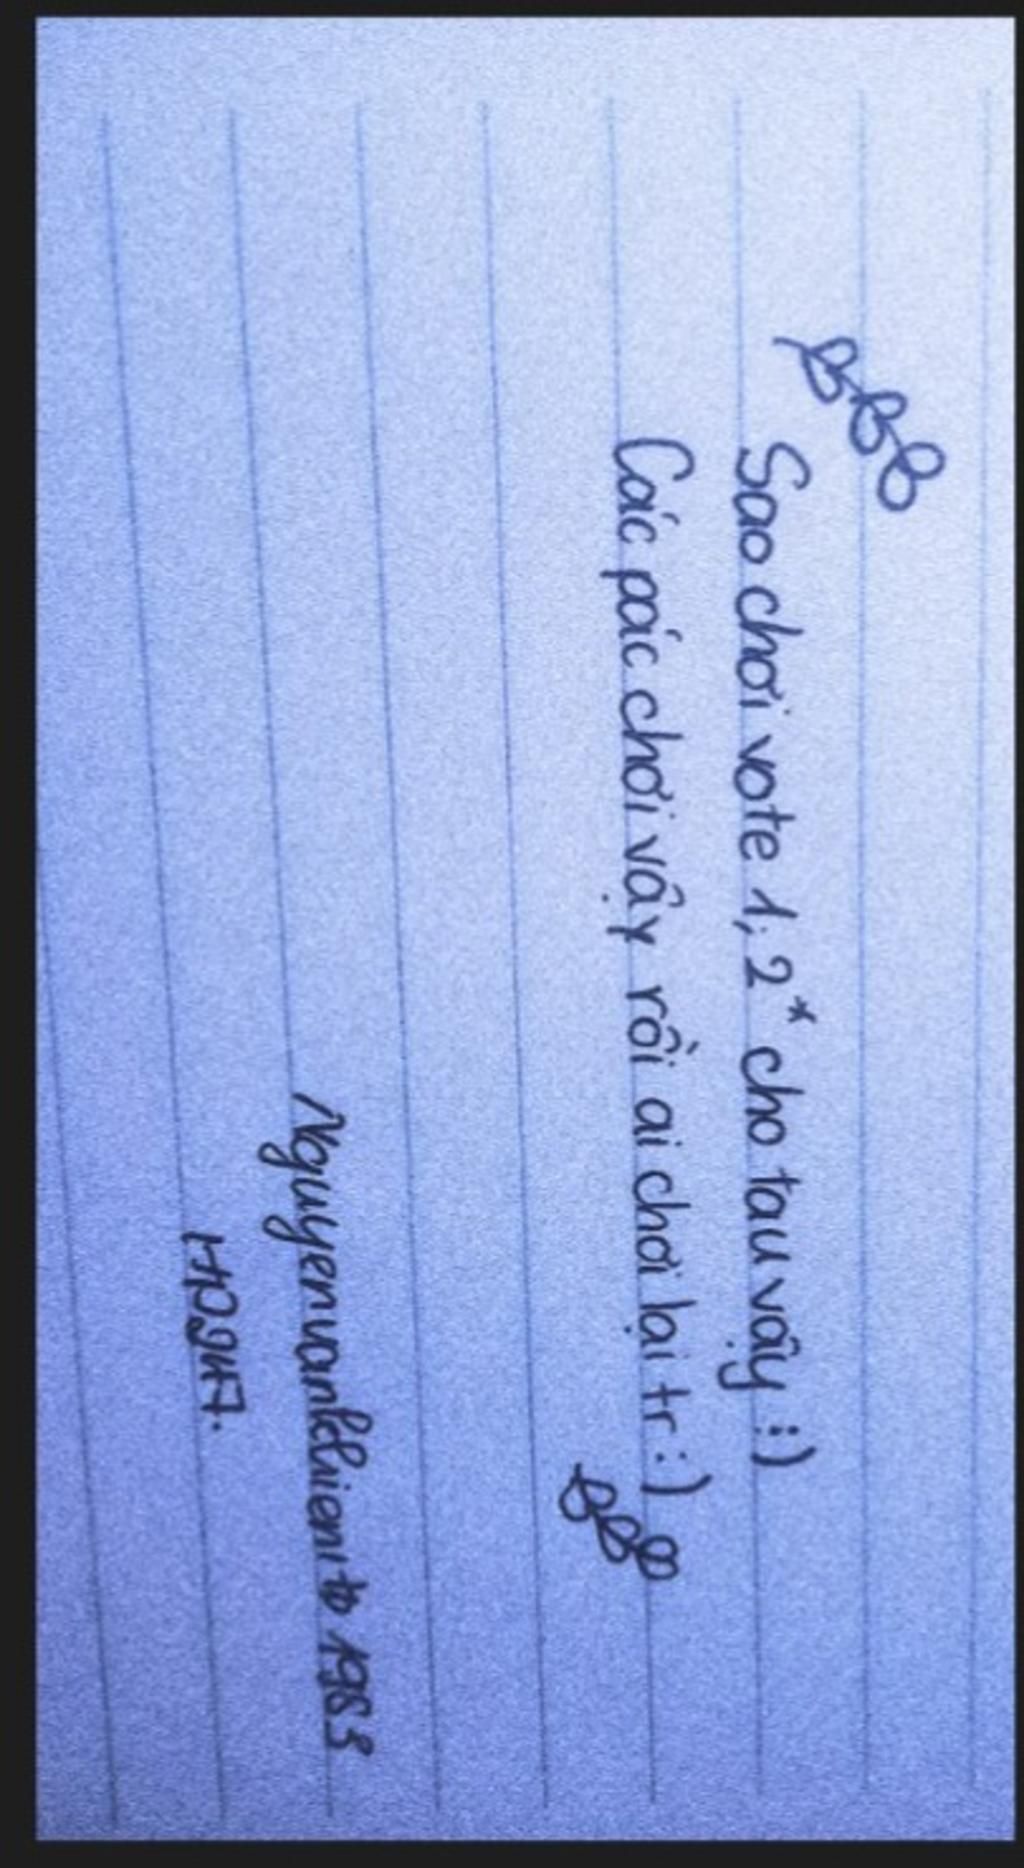 Sao chơi vote 1, 2* cho tau vậy :)
Các pác chơi vậy rồi ai chơi lại tr :)
1983